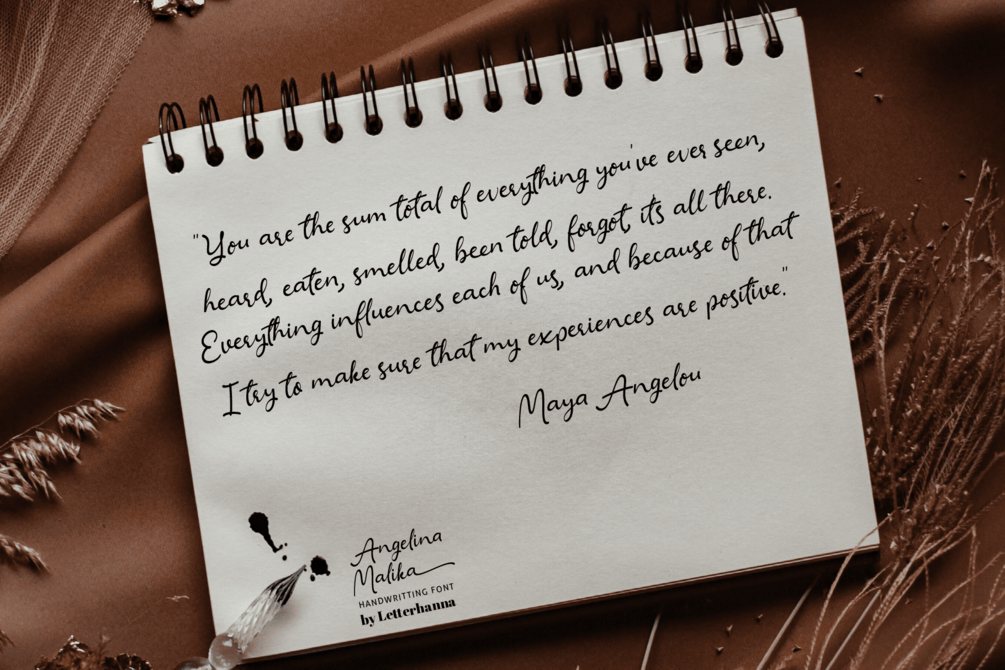 "You are the sum total of everything you've ever seen,
heard, eaten, smelled, been told, forgot, it's all there.
Everything influences each of us, and because of that
I try to make sure that my experiences are positive."
Maya Angelou
Angelina
Malika
HANDWRITTING FONT
by Letterhanna